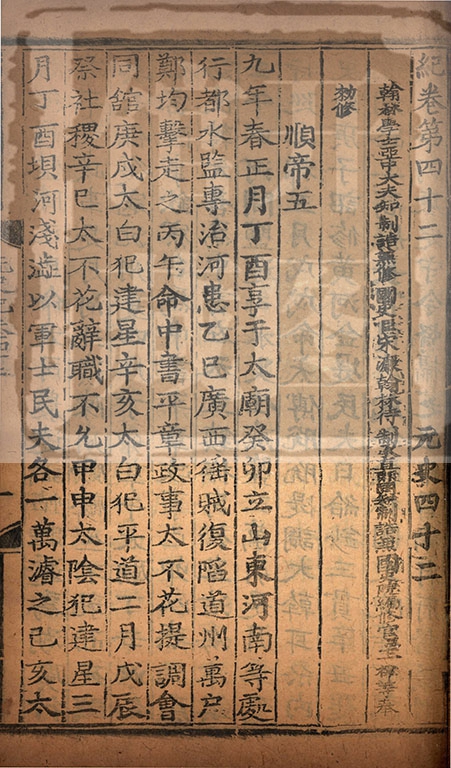 紀卷第四十二 元史四十二
翰林學士亞中大夫知制誥兼修國史臣宋濂翰林待制承直郎同知制誥兼國史院編修官臣王禕等奉
勑修
順帝五
九年春正月丁酉享于太廟癸卯立山東河南等處
行都水監專治河患乙巳廣西猺賊復陷道州萬戶
鄭均擊走之丙午命中書平章政事太不花提調會
同館庚戌太白犯建星辛亥太白犯平道二月戊辰
祭社稷辛巳太不花辭職不允甲申太陰犯建星三
月丁酉埧河淺澁以軍士民夫各一萬濬之己亥太